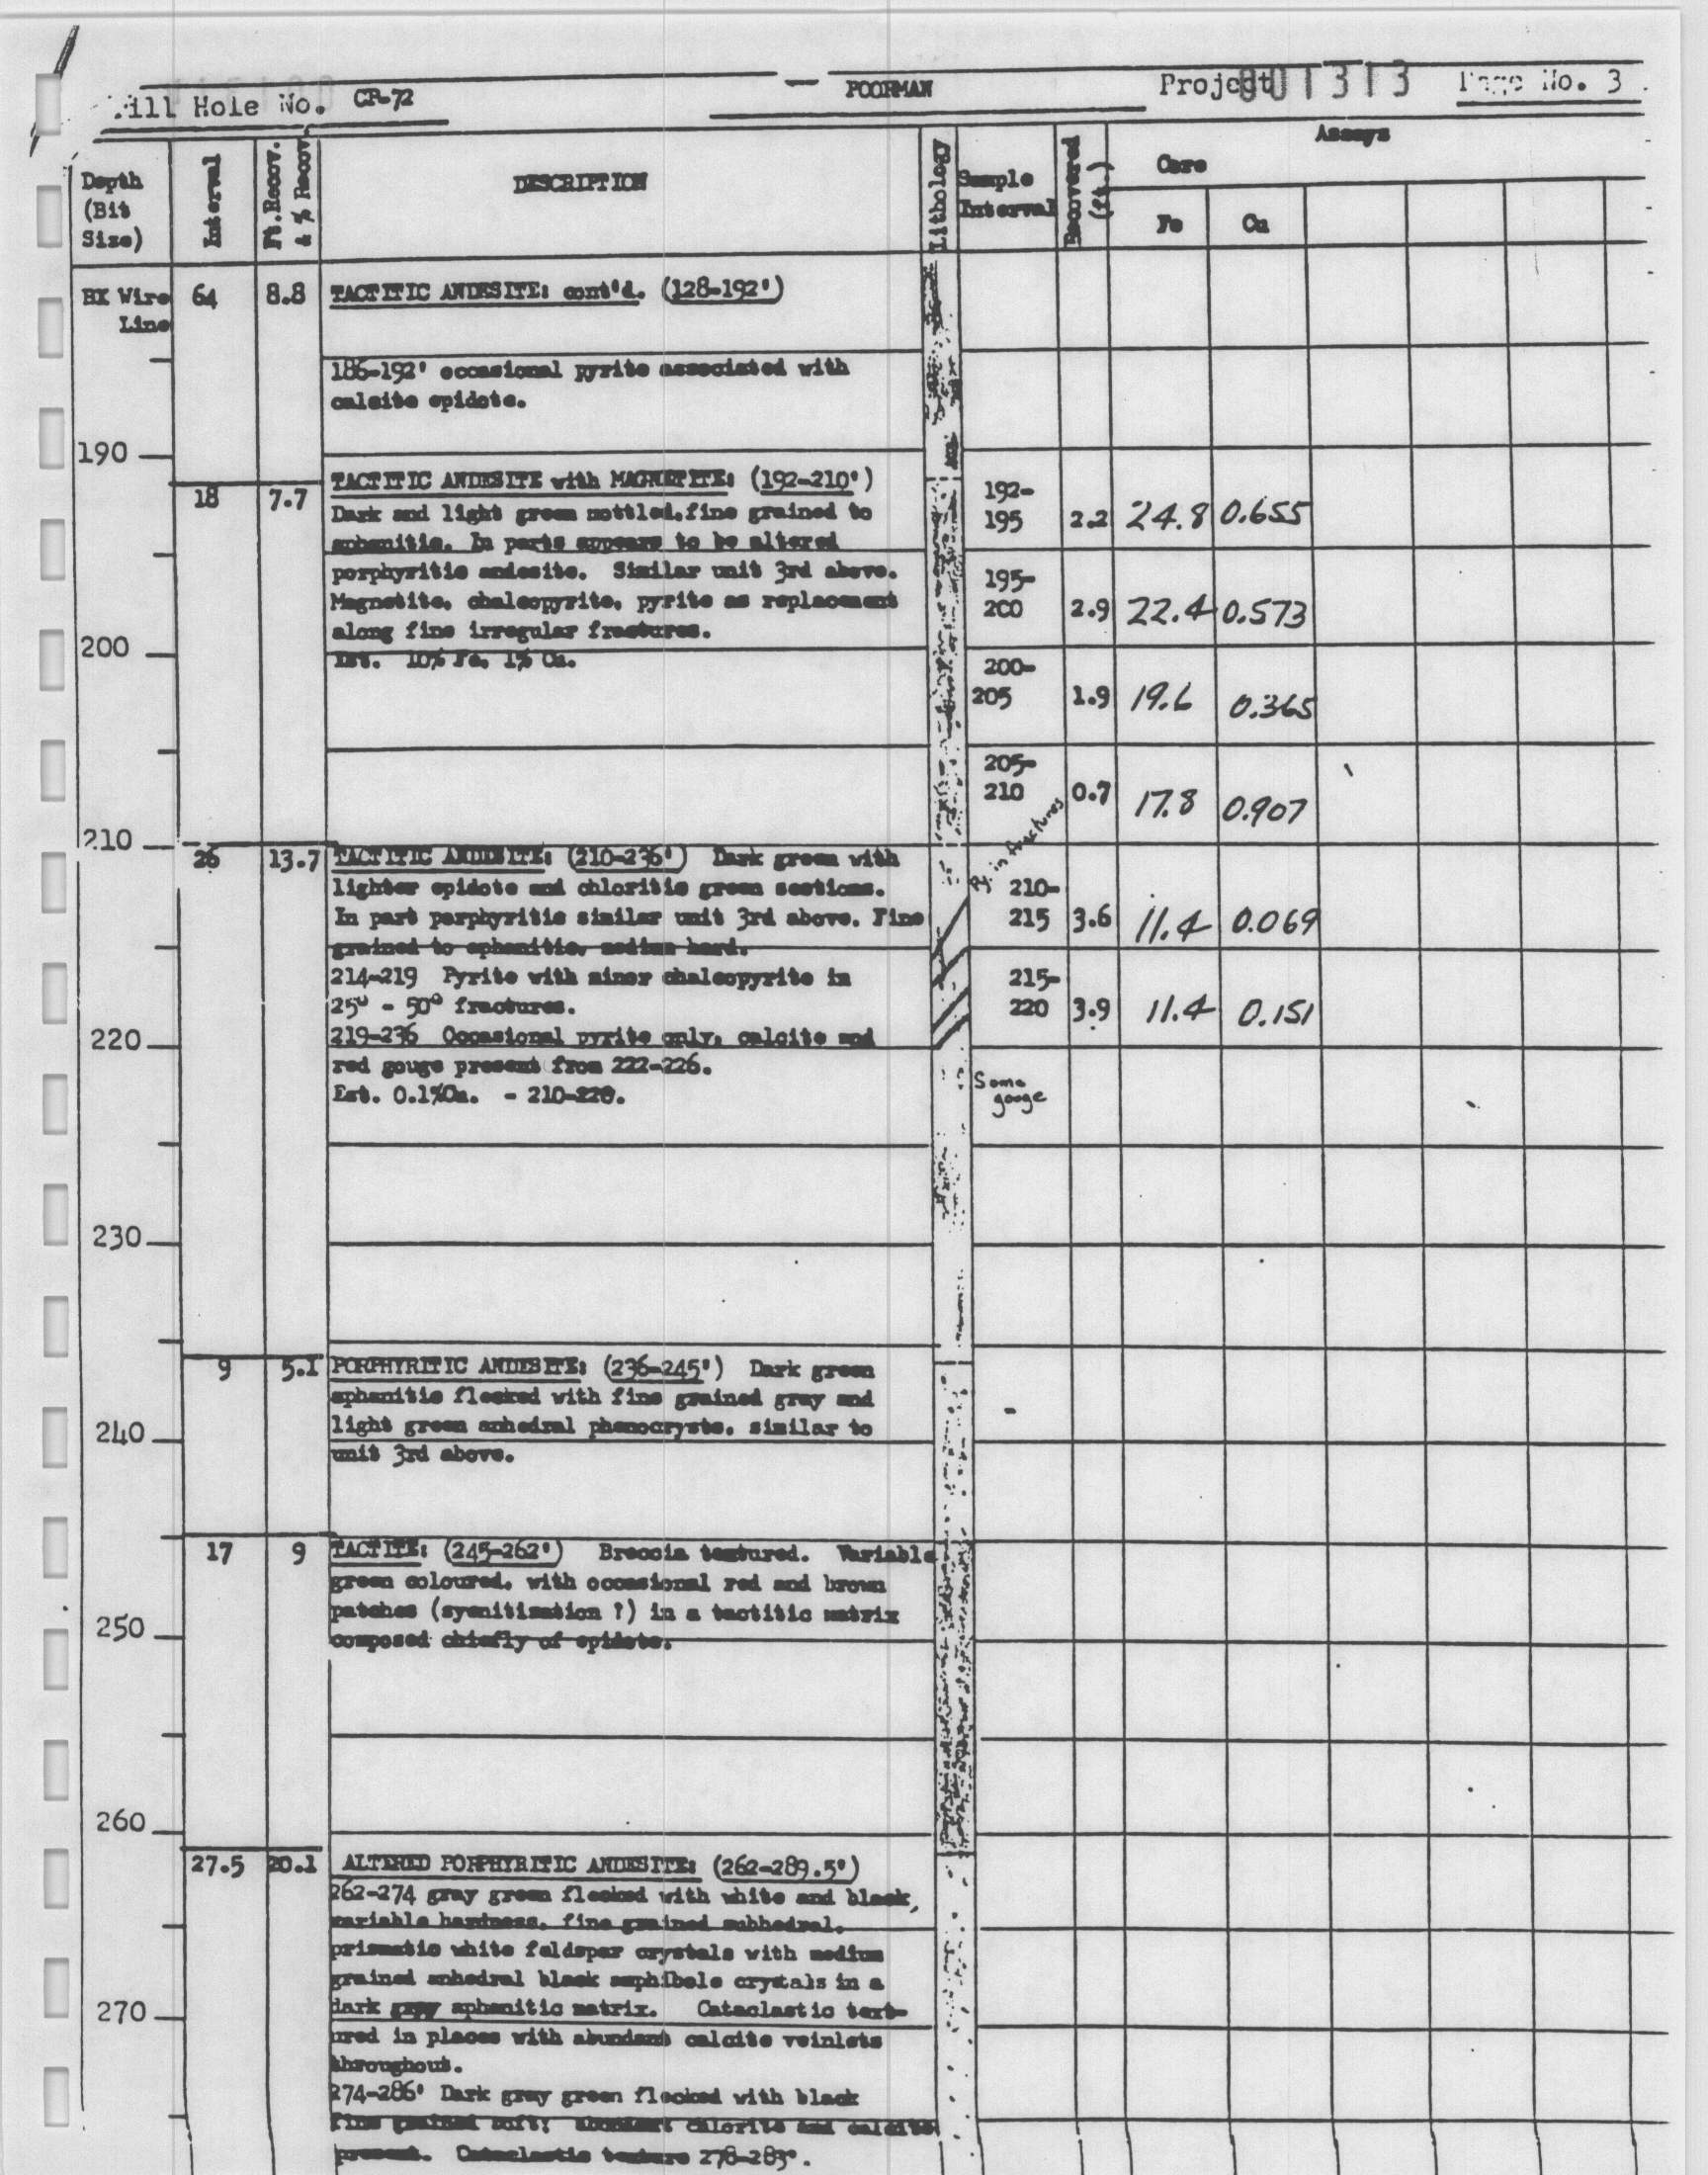 ill Hole No. CP-72
POORMAN
Project
001313
Page No. 3
Depth
(Bit
Size)
Interval
Ft.Recov.
& % Recov
DESCRIPTION
Lithology
Sample
Interval
Recovered
(ft.)
Assays
Core
Fe
Cu
BX Wire
Line
64
8.8
TACTITIC ANDESITE: cont'd. (128-192')
186-192' occasional pyrite associated with
calcite epidote.
190
18
7.7
TACTITIC ANDESITE with MAGNETITE: (192-210')
Dark and light green mottled, fine grained to
aphanitic. In parts appears to be altered
porphyritic andesite. Similar unit 3rd above.
Magnetite, chalcopyrite, pyrite as replacement
along fine irregular fractures.
Est. 10% Fe, 1% Cu.
192-
195 2.2 24.8 0.655
195-
200 2.9 22.4 0.573
200
200-
205 1.9 19.6 0.365
205-
210 0.7 17.8 0.907
Py. in fractures
210
26
13.7
TACTITIC ANDESITE: (210-236') Dark green with
lighter epidote and chloritic green sections.
In part porphyritic similar unit 3rd above. Fine
grained to aphanitic, medium hard.
214-219 Pyrite with minor chalcopyrite in
25° - 50° fractures.
219-236 Occasional pyrite only, calcite and
red gouge present from 222-226.
Est. 0.1%Cu. - 210-220.
210-
215 3.6 11.4 0.069
215-
220 3.9 11.4 0.151
220
Some
gouge
230
9
5.1
PORPHYRITIC ANDESITE: (236-245') Dark green
aphanitic flecked with fine grained gray and
light green anhedral phenocrysts, similar to
unit 3rd above.
240
17
9
TACTITE: (245-262') Breccia textured. Variable
green coloured, with occasional red and brown
patches (syenitization ?) in a tactitic matrix
composed chiefly of epidote.
250
260
27.5
20.1
ALTERED PORPHYRITIC ANDESITE: (262-289.5')
262-274 gray green flecked with white and black,
variable hardness, fine grained subhedral,
prismatic white feldspar crystals with medium
grained anhedral black amphibole crystals in a
dark gray aphanitic matrix. Cataclastic text-
ured in places with abundant calcite veinlets
throughout.
270
274-286' Dark gray green flecked with black
fine grained soft; abundant chlorite and calcite
present. Cataclastic texture 278-283'.